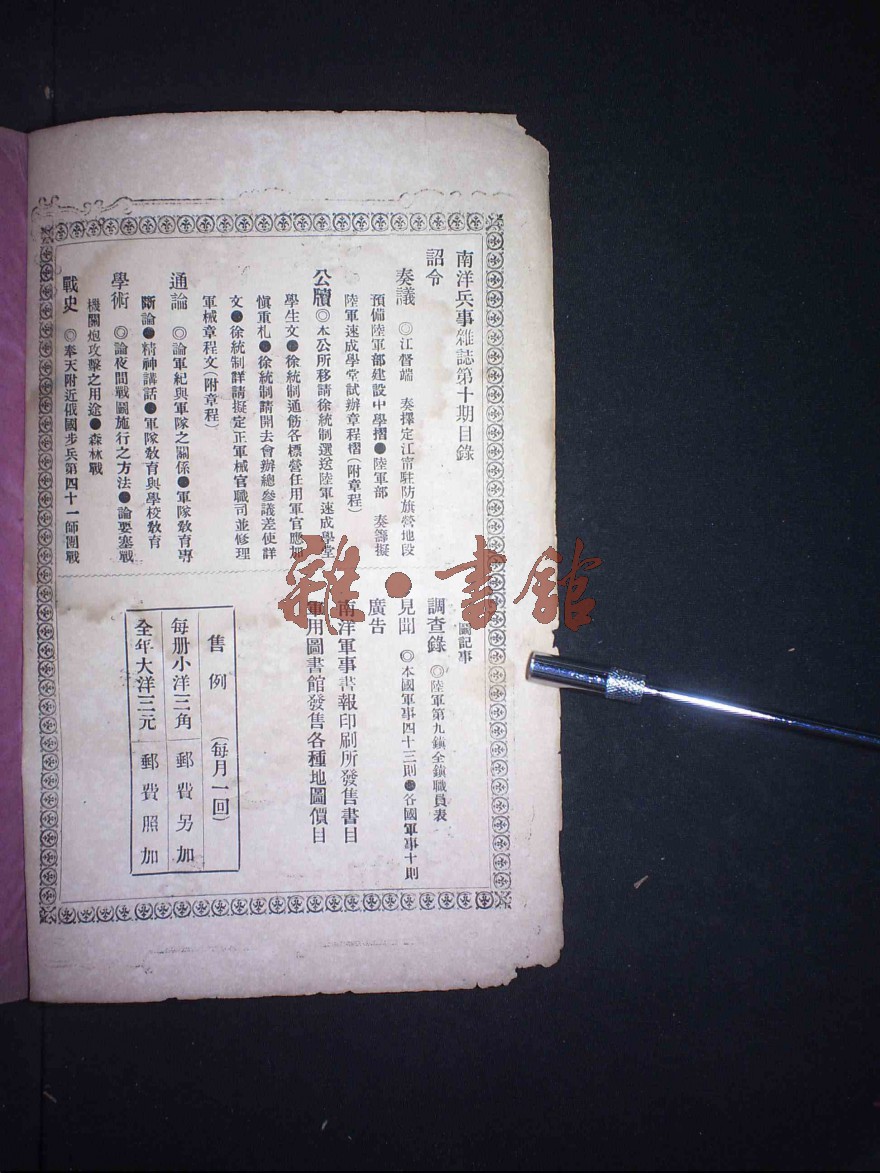 南洋兵事雜誌第十期目錄
詔令
奏議 ◎江督端 奏擇定江甯駐防旗營地段
預備陸軍部建設中學摺●陸軍部 奏籌擬
陸軍速成學堂試辦章程摺(附章程)
公牘◎本公所移請徐統制選送陸軍速成學堂
學生文●徐統制通飭各標營任用軍官應加
愼重札●徐統制請開去會辦總參議差使詳
文●徐統制詳請擬定正軍械官職司並修理
軍械章程文(附章程)
通論 ◎論軍紀與軍隊之關係●軍隊敎育專
斷論●精神講話●軍隊敎育與學校敎育
學術 ◎論夜間戰鬪施行之方法●論要塞戰
機關炮攻擊之用途●森林戰
戰史 ◎奉天附近俄國步兵第四十一師團戰
鬪記事
調查錄 ◎陸軍第九鎮全鎮職員表
見聞 ◎本國軍事四十三則●各國軍事十則
廣告
南洋軍事書報印刷所發售書目
軍用圖書館發售各種地圖價目
售例 (每月一回)
每册小洋三角 郵費另加
全年大洋三元 郵費照加
雜·書館